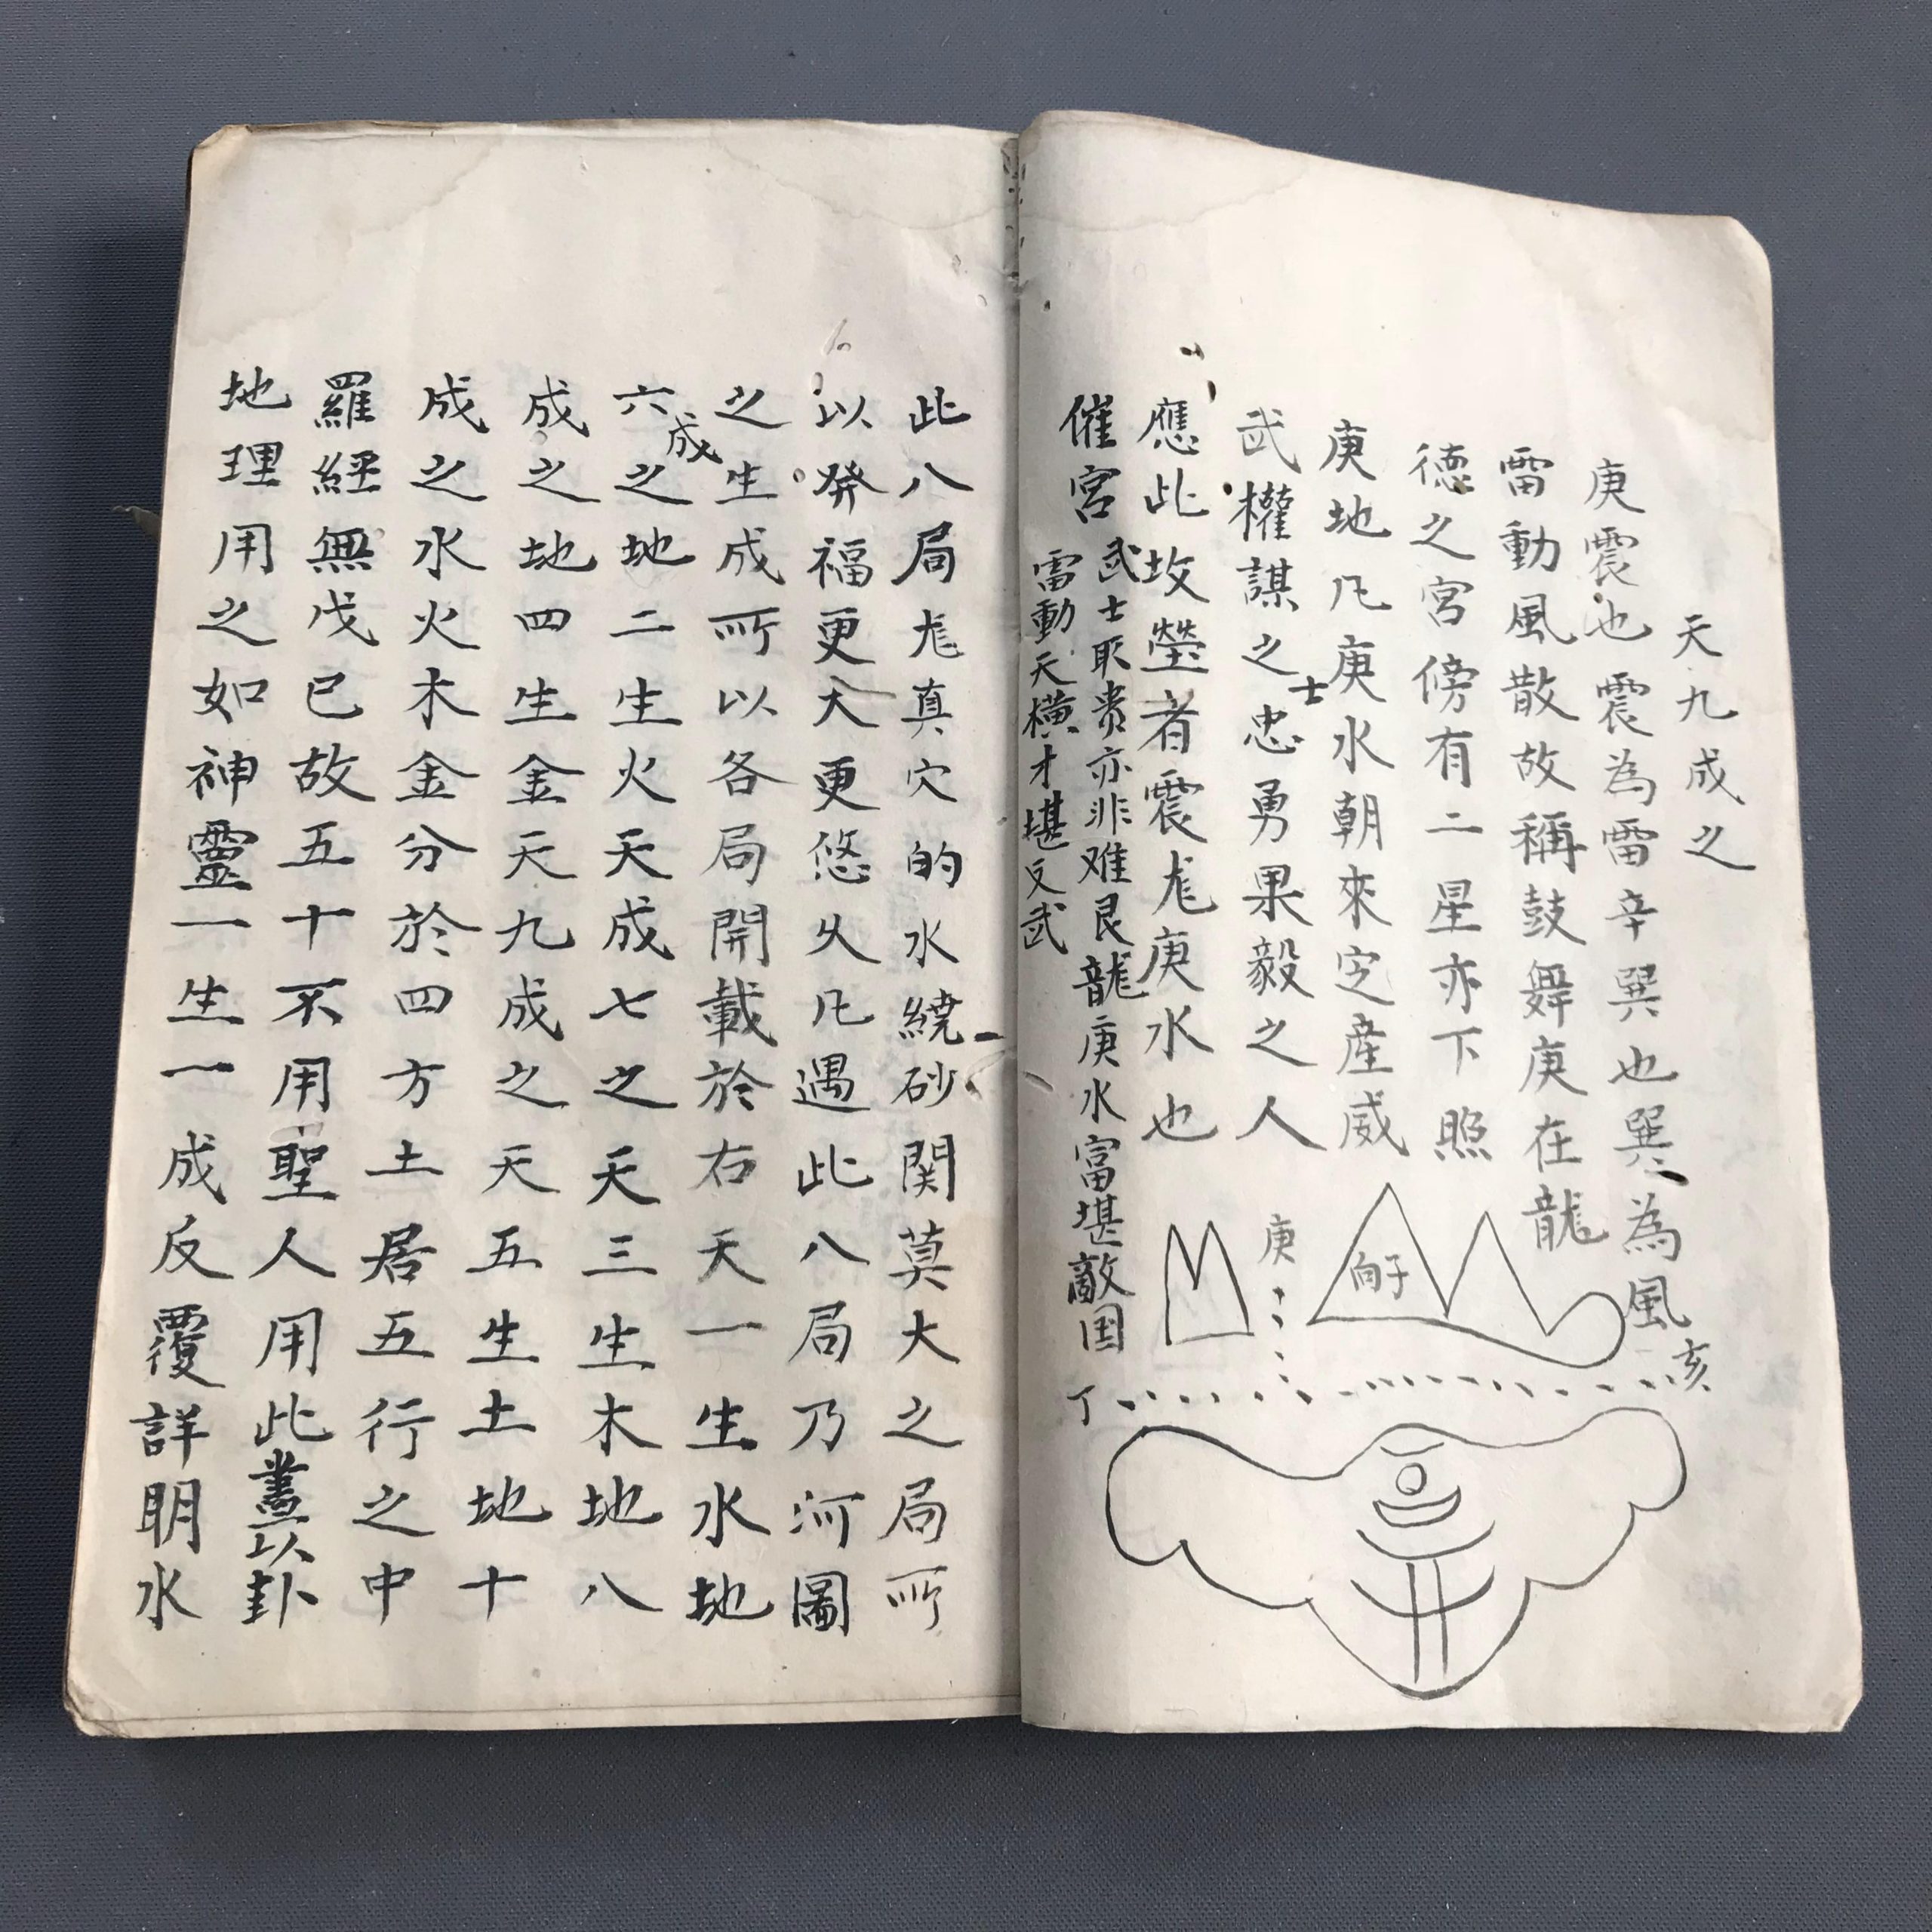 天九成之
庚震也震為雷辛巽也巽為風
雷動風散故稱鼓舞庚在龍
德之宮傍有二星亦下照
庚地凡庚水朝來定產威
武權謀之士忠勇果毅之人
應此坟塋者震龙庚水也
催官
武士取贵亦非难艮龍庚水富堪敵国
雷動天横才堪反武
庚
向子
亥
丁
此八局龙真穴的水繞砂関莫大之局所
以發福更大更悠久凡遇此八局乃河圖
之生成所以各局開載於右天一生水地
六成之地二生火天成七之天三生木地八
成之地四生金天九成之天五生土地十
成之水火木金分於四方土居五行之中
羅經無戊已故五十不用聖人用此畫以卦
地理用之如神靈一生一成反覆詳明水